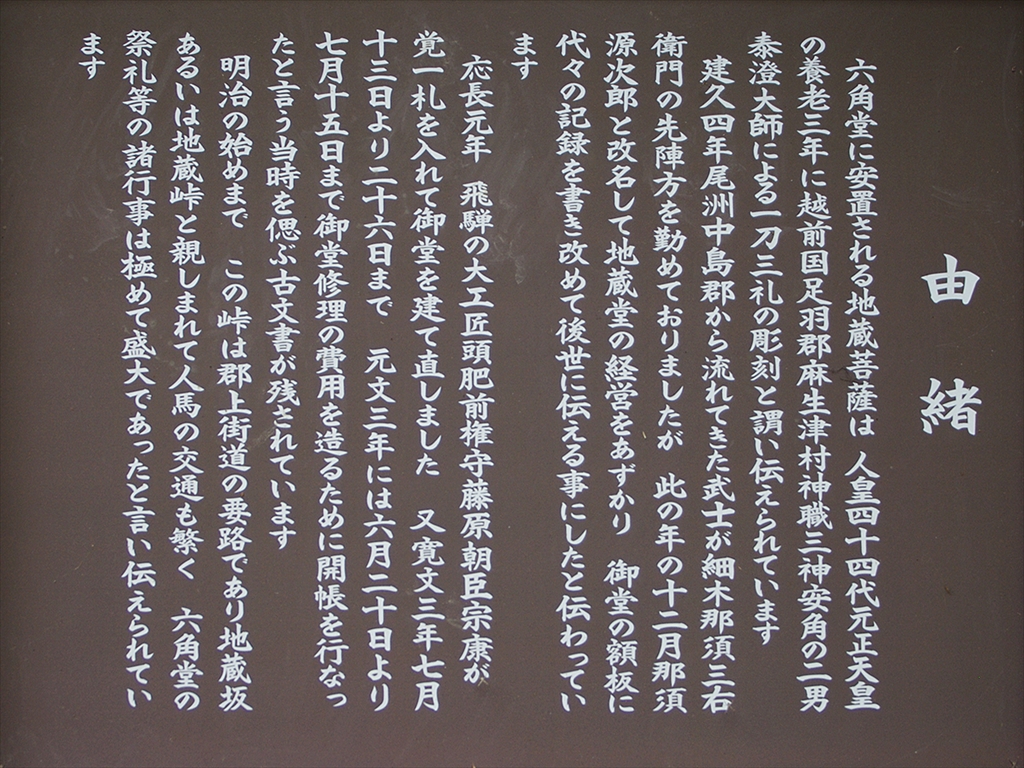 由緒
六角堂に安置される地蔵菩薩は　人皇四十四代元正天皇
の養老三年に越前国足羽郡麻生津村神職三神安角の二男
泰澄大師による一刀三礼の彫刻と謂い伝えられています
建久四年尾洲中島郡から流れてきた武士が細木那須三右
衛門の先陣方を勤めておりましたが　此の年の十二月那須
源次郎と改名して地蔵堂の経営をあずかり　御堂の額板に
代々の記録を書き改めて後世に伝える事にしたと伝わってい
ます
応長元年　飛騨の大工匠頭肥前権守藤原朝臣宗康が
覚一札を入れて御堂を建て直しました　又寛文三年七月
十三日より二十六日まで　元文三年には六月二十日より
七月十五日まで御堂修理の費用を造るために開帳を行なっ
たと言う当時を偲ぶ古文書が残されています
明治の始めまで　この峠は郡上街道の要路であり地蔵坂
あるいは地蔵峠と親しまれて人馬の交通も繁く　六角堂の
祭礼等の諸行事は極めて盛大であったと言い伝えられてい
ます